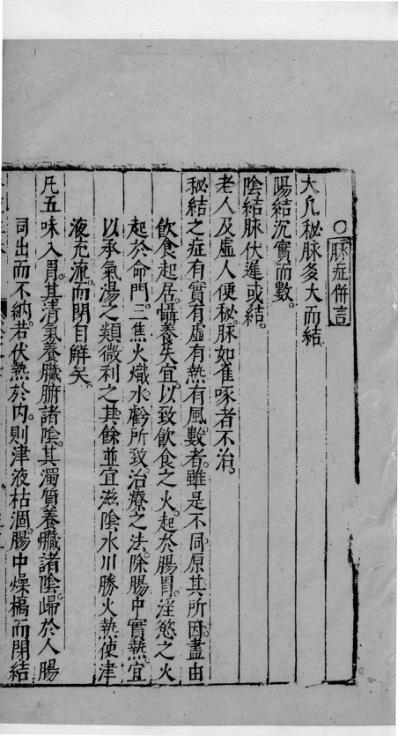 ○脉症併言
大凡秘脉多大而結
陽結沉實而數
陰結脉伏遲或結
老人及虛人便秘脉如雀啄者不治
秘結之症有實有虛有熱有風數者雖是不同原其所因盡由
飲食起居攝養失宜以致飲食之火起於腸胃淫慾之火
起於命門三焦火熾水虧所致治療之法除腸中實熱宜
以承氣湯之類微利之其餘並宜滋陰水川勝火熱使津
液充流而閉自解矣
凡五味入胃其清氣養臟腑諸陰其濁質養臟諸陰歸於人腸
司出而不納若伏熱於內則津液枯涸腸中燥槁而閉結